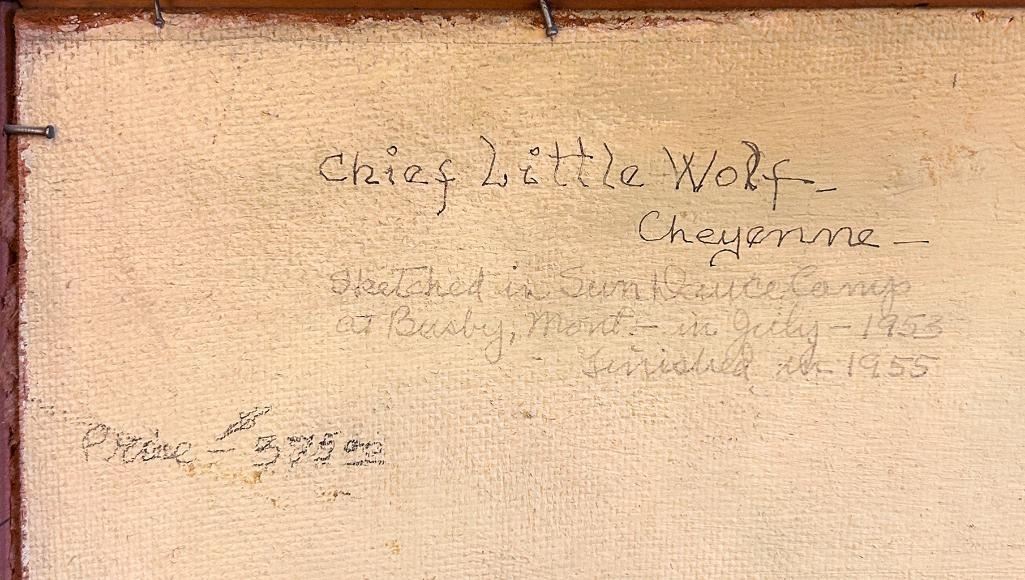 Chief Little Wolf-
Cheyenne -
Sketched in Sun Dance Camp
at Busby, Mont. - in July - 1953
Finished in 1955
Price - $375.00